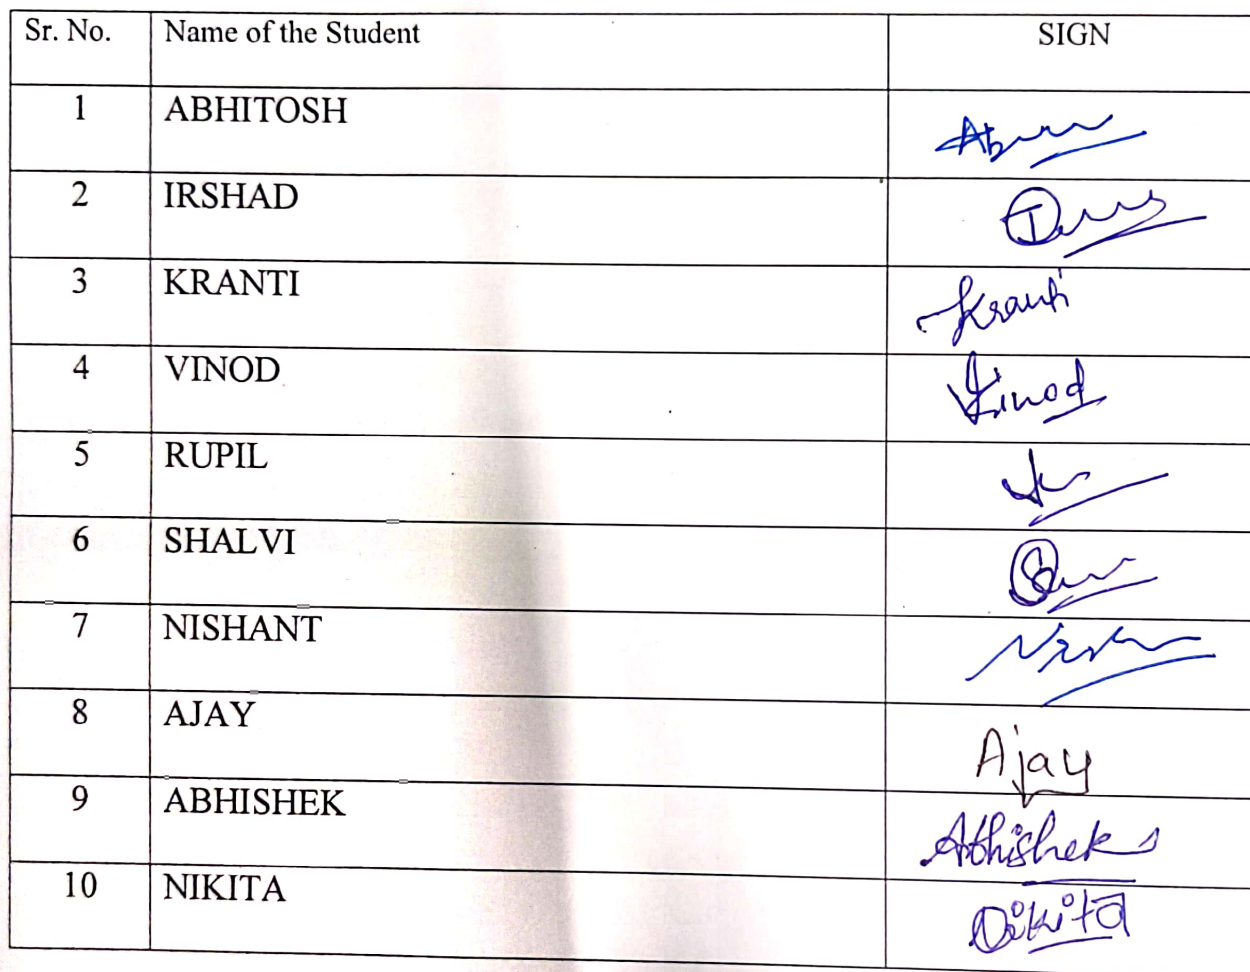 Sr. No. Name of the Student SIGN
1 ABHITOSH
2 IRSHAD
3 KRANTI Kranti
4 VINOD Vinod
5 RUPIL
6 SHALVI
7 NISHANT
8 AJAY Ajay
9 ABHISHEK Abhishek
10 NIKITA Nikita